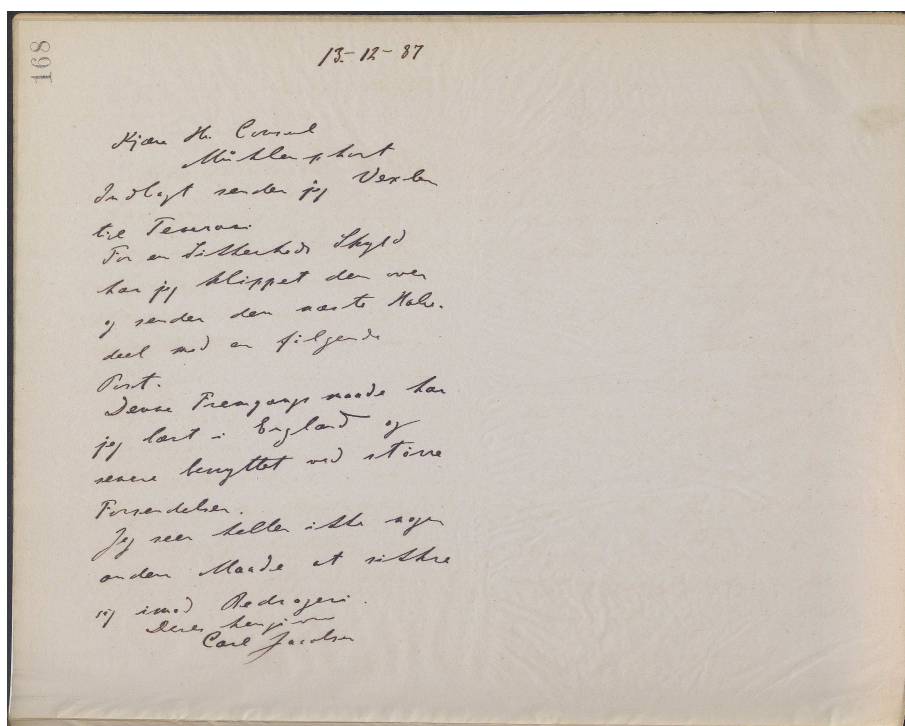 168
13-12-87
Kjære Hr. Consul
Mühlenphort
Indlagt sender jeg Vexlen
til Tenerani
For en Sikkerheds Skyld
har jeg klippet den over
og sender den næste Halv-
deel med en følgende
Post.
Denne Fremgangsmaade har
jeg lært i England og
senere benyttet ved større
Forsendelser.
Jeg seer heller ikke nogen
anden Maade at sikkre
sig imod Bedrageri.
Deres hengivne
Carl Jacobsen